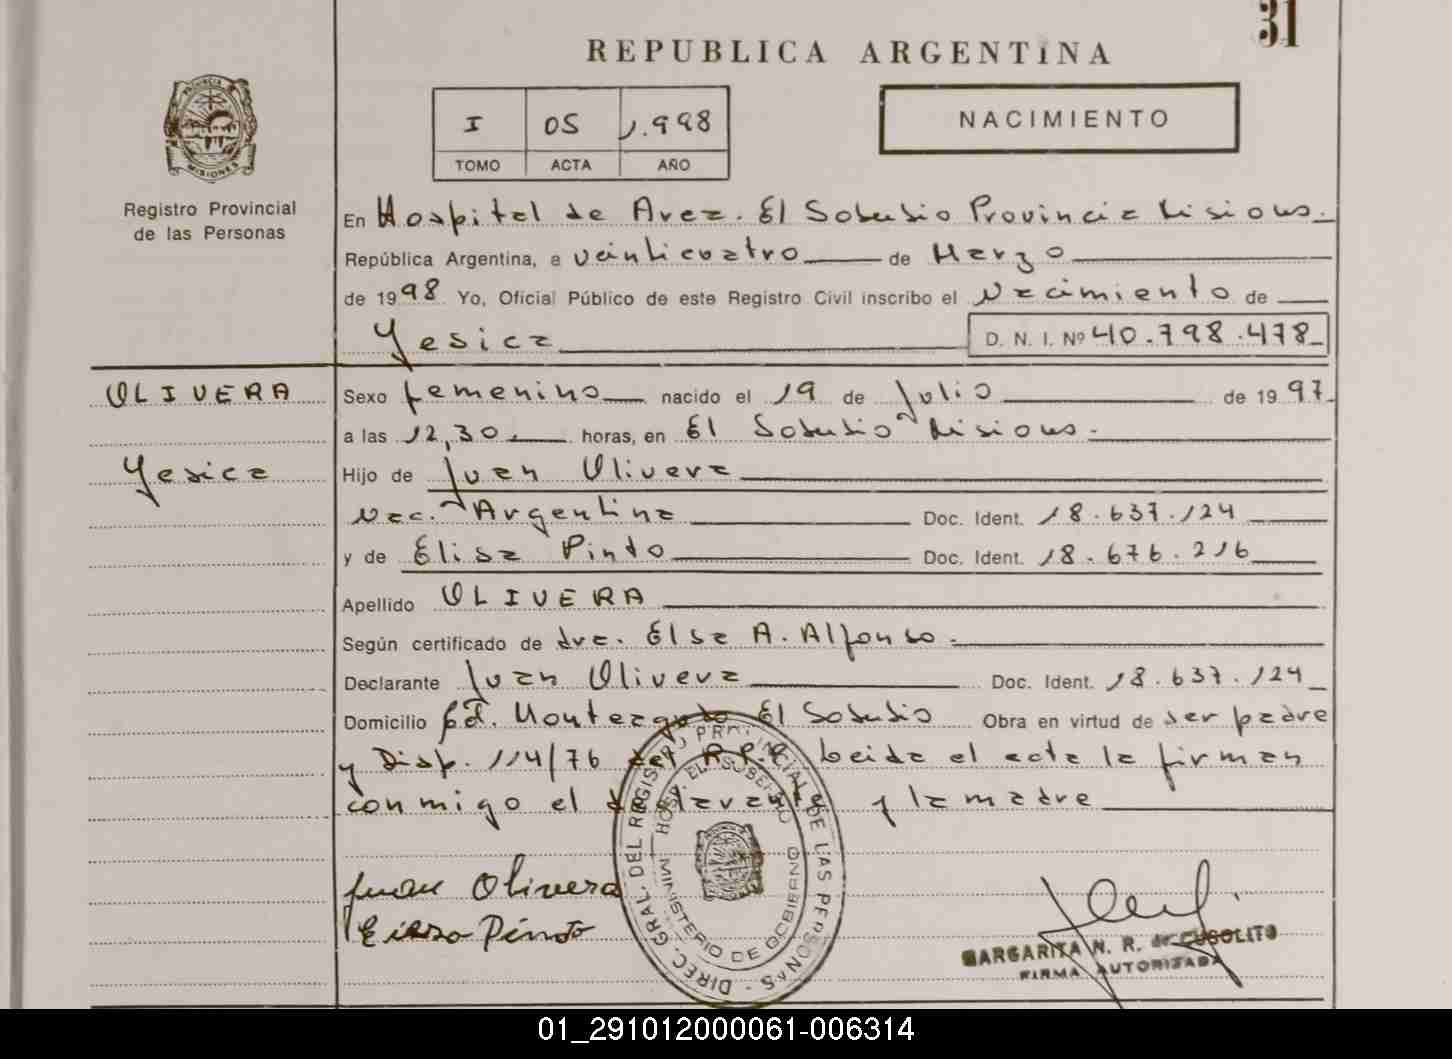 31
REPUBLICA ARGENTINA
I 05 1.998
TOMO ACTA AÑO
NACIMIENTO
PROVINCIA DE
MISIONES
Registro Provincial
de las Personas
En Hospital de Area. El Soberbio Provincia Misiones.
República Argentina, a veinticuatro de Marzo
de 1998 Yo, Oficial Público de este Registro Civil inscribo el Nacimiento de
Yesica D. N. I. Nº 40.798.478
OLIVERA
Yesica
Sexo femenino nacido el 19 de Julio de 1997
a las 12,30 horas, en El Soberbio Misiones.
Hijo de Juan Olivera
Nac. Argentina Doc. Ident. 18.637.124
y de Elisa Pinto Doc. Ident. 18.676.216
Apellido OLIVERA
Según certificado de dra. Elsa A. Alfonso.
Declarante Juan Olivera Doc. Ident. 18.637.124
Domicilio Cd. Monteagudo El Soberbio Obra en virtud de ser padre
y Disp. 114/76 del R.P.P. Leida el acta la firman
conmigo el declarante y la madre
Juan Olivera
Pinto
DIREC. GRAL. DEL REGISTRO PROVINCIAL DE LAS PERSONAS
HOSP. EL SOBERBIO
MINISTERIO DE GOBIERNO
MARGARITA N. R. de CUGOLITO
FIRMA AUTORIZADA
01_291012000061-006314